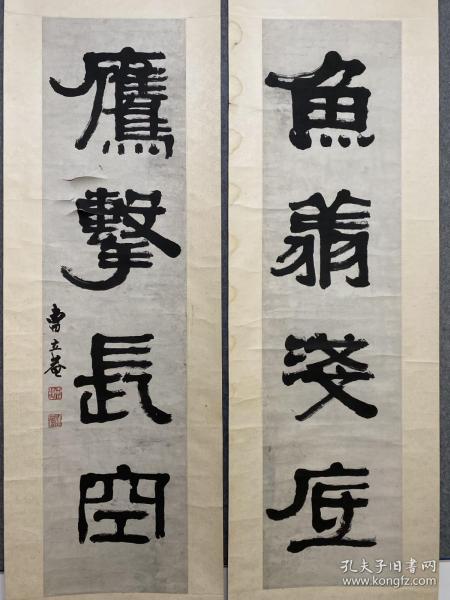 魚翔淺底
鷹擊長空
曹立菴
孔夫子旧书网
www.kongfz.com